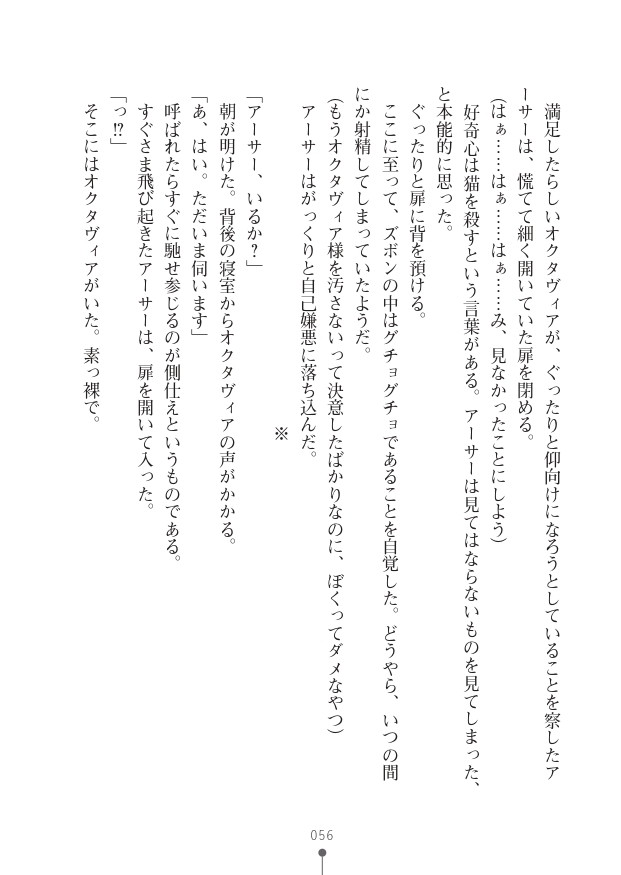 満足したらしいオクタヴィアが、ぐったりと仰向けになろうとしていることを察したア
ーサーは、慌てて細く開いていた扉を閉める。
（はぁ……はぁ……はぁ……み、見なかったことにしよう）
好奇心は猫を殺すという言葉がある。アーサーは見てはならないものを見てしまった、
と本能的に思った。
ぐったりと扉に背を預ける。
ここに至って、ズボンの中はグチョグチョであることを自覚した。どうやら、いつの間
にか射精してしまっていたようだ。
（もうオクタヴィア様を汚さないって決意したばかりなのに、ぼくってダメなやつ）
アーサーはがっくりと自己嫌悪に落ち込んだ。
※
「アーサー、いるか？」
朝が明けた。背後の寝室からオクタヴィアの声がかかる。
「あ、はい。ただいま伺います」
呼ばれたらすぐに馳せ参じるのが側仕えというものである。
すぐさま飛び起きたアーサーは、扉を開いて入った。
「っ!?」
そこにはオクタヴィアがいた。素っ裸で。
056